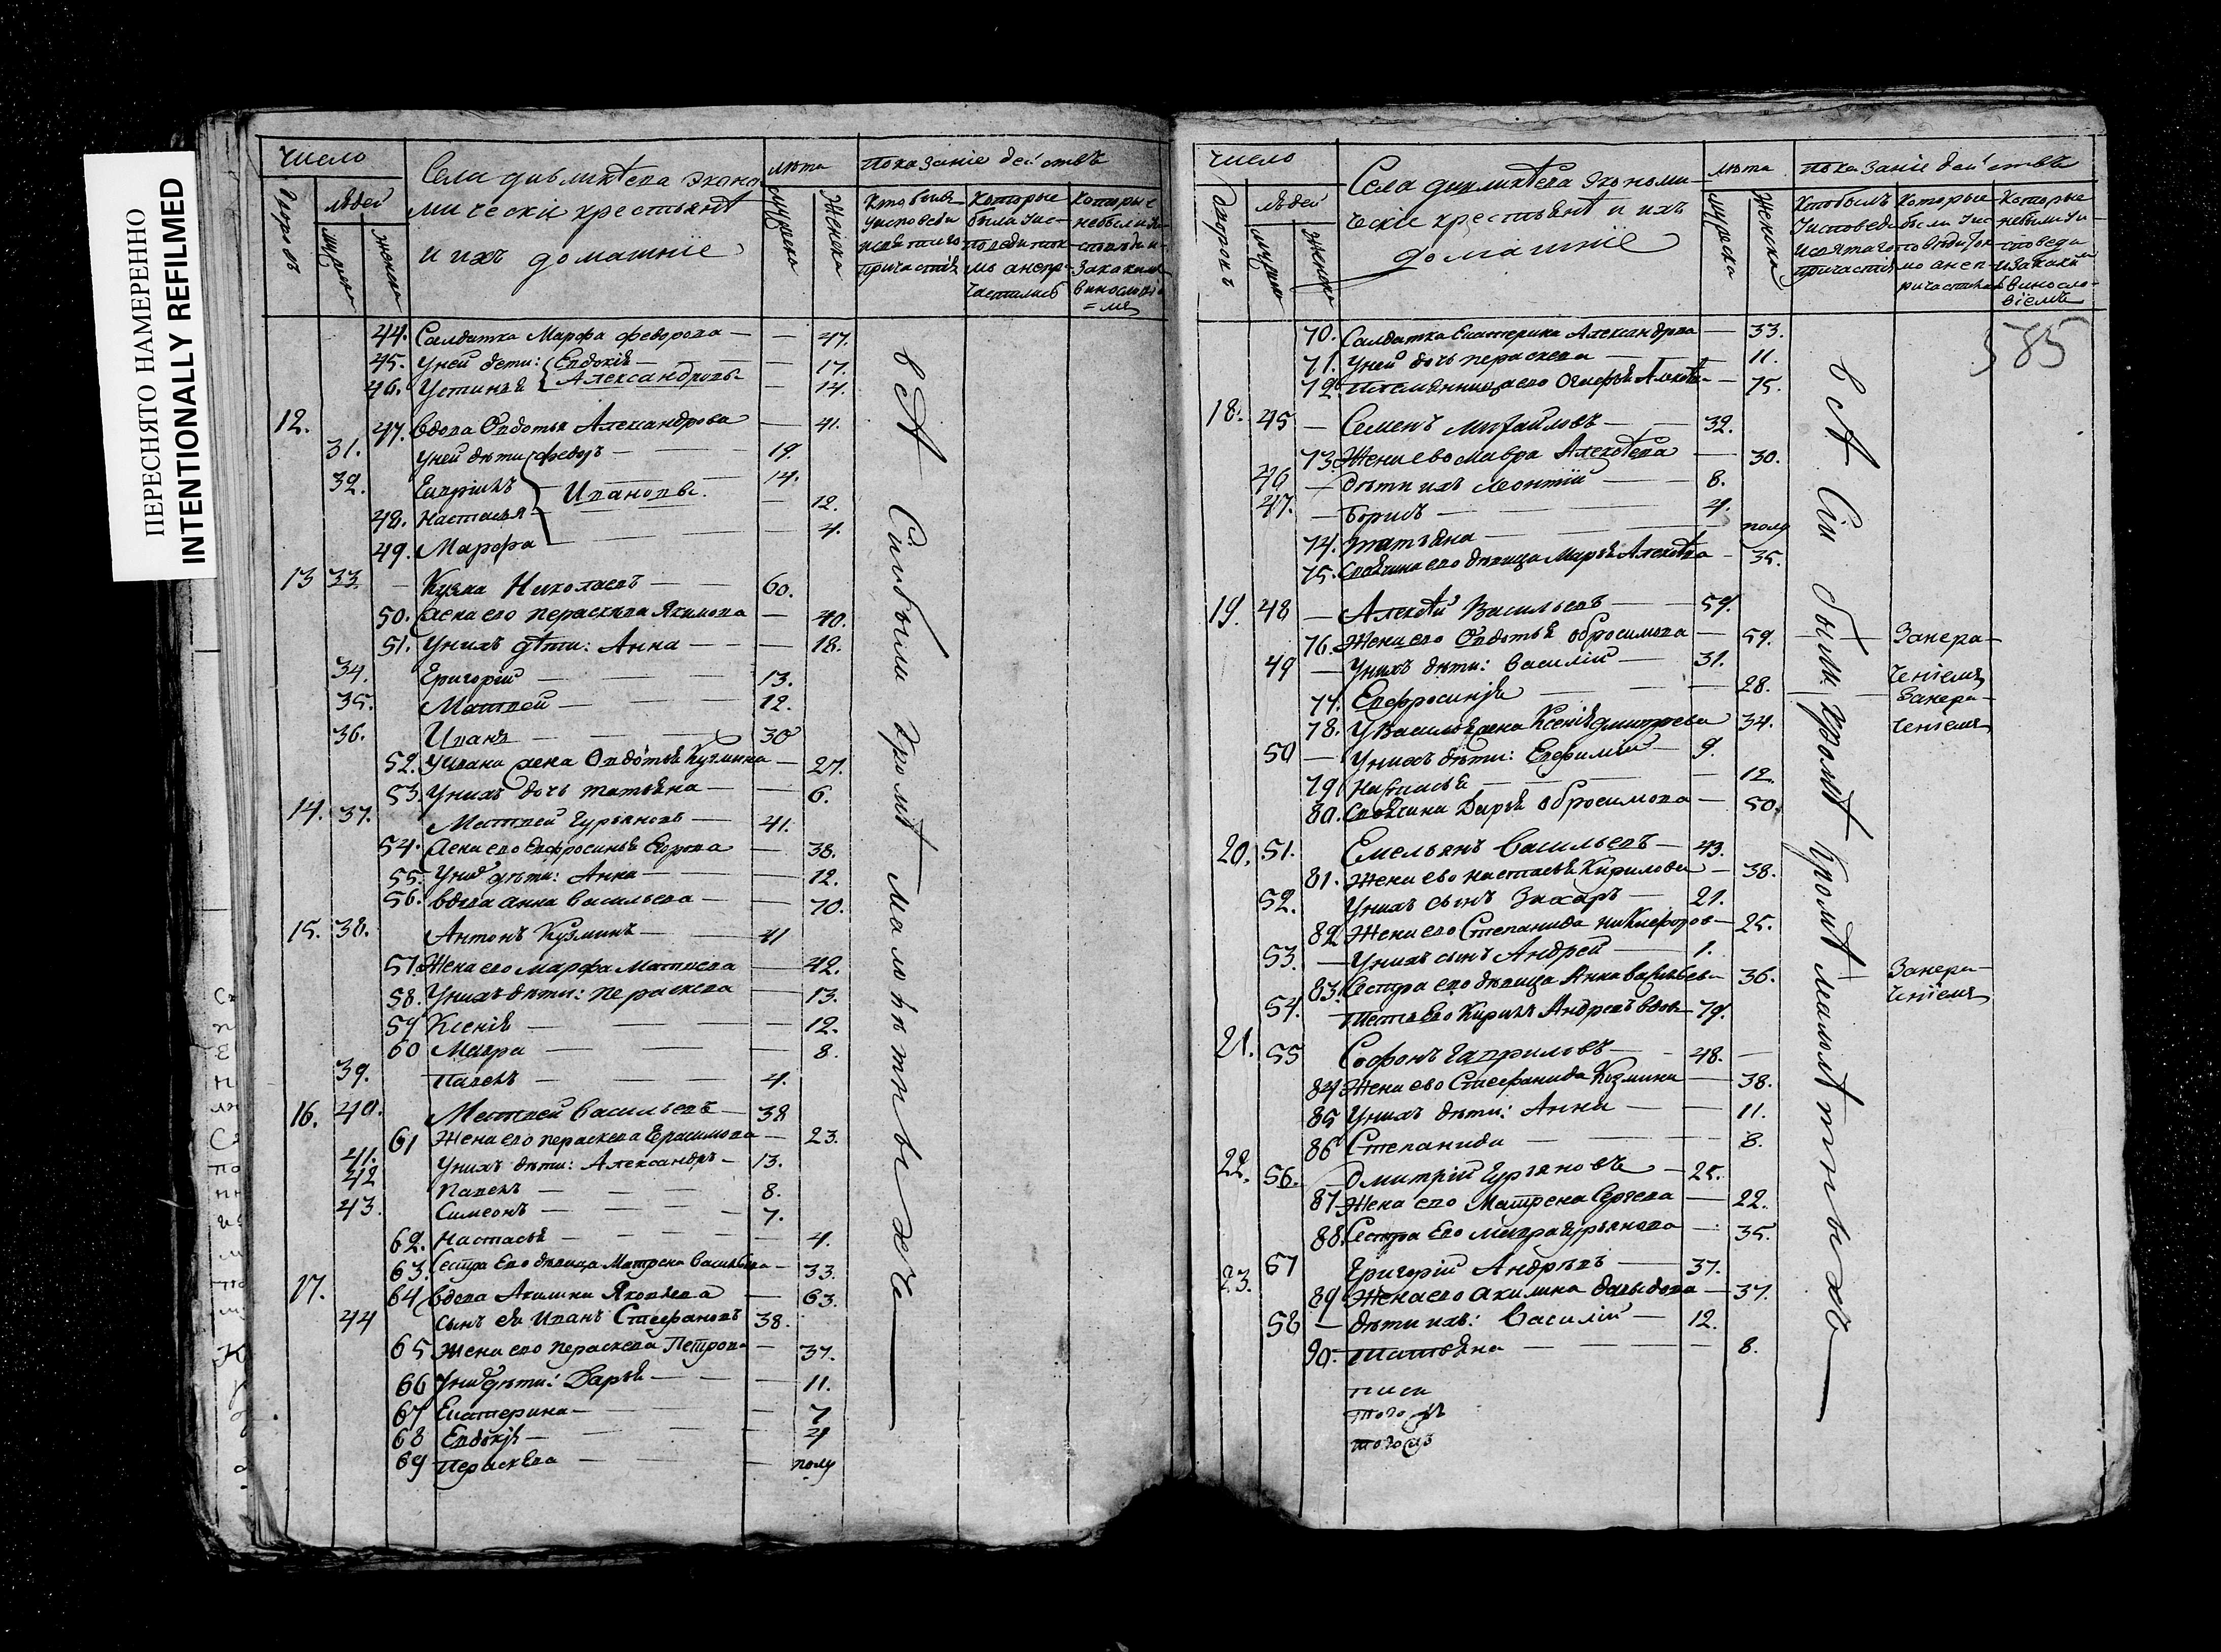 ПЕРЕСНЯТО НАМЕРЕННО
INTENTIONALLY REFILMED
число
Села дивликѣева эконо
мически крестьянѣ
и ихъ домашніе
лѣта
показаніе действъ
дворовъ
людей
мужеска
женска
мужеска
женска
Кто были
уисповеди
исвятаго
причастия
Которые
были уис-
поведи ток-
мо анепр-
частились
Которые
небыли уи-
споведи и-
закаким
винословіе
=мъ
44. Салдатка Марфа федорова — — 47.
45. Уней дети: Евдокія — — 17.
46. Устинья Александровы — 14.
12. 47. Вдова Овдотья Александрова — 41.
31. Уней дѣти федоръ — — 19.
32. Гаврилъ — 14.
Ивановы
48. Настасья — — 12.
49. Марфа — — 4.
13 33 — Кузма Николаевъ — — 60.
50. жена ево Пераскева Якимова — 40.
51. Унихъ дѣти: Анна — — — 18.
34. Григорій — — 13.
35. Матвей — — 12.
36. Иванъ — — 30
52. У Ивана жена Овдотья Кузмина — 27.
53. Унихъ дочь татьяна — — 6.
14. 37. Матвей Гурьяновъ — 41.
54. жена ево Евфросинья Егорова — 38.
55. Унихъ дѣти: Анна — — 12.
56. вдова анна васильева — — 70.
15. 38. Антонъ Кузминъ — — 41
57. Жена ево марфа Матвеева — 42.
58. Унихъ дѣти: пераскева — 13.
59 Ксенія — — — 12.
60 Мавра — — — 8.
39. Павелъ — — — 4.
16. 40. Матвей васильевъ — 38
61 Жена ево пераскева Герасимова — 23.
41. Унихъ дѣти: Александръ — 13.
42 Павелъ — — — 8.
43. Симеонъ — — — 7.
62. Настасья — — — 4.
63. Сестра Ево девица Матрена васильева — 33.
17. 64 вдова Акилина Яковлева — 63.
44 сынъ ея Иванъ Стефановъ 38.
65 Жена ево пераскева Петрова — 37.
66 Унихъ дѣти: Дарья — — 11.
67 Екатерина — — 7
68 Евдокія — — 4
69 Пераскева — — полу
всѣ Сіи были кромѣ малолѣтныхъ
число
Села дивликѣева экономи
ческіе крестьянѣ и ихъ
домашніе
лѣта
показаніе действъ
дворовъ
людей
мужеска
женска
мужеска
женска
Кто былъ
Уисповеди
исвятаго
причастия
Которые
были уис-
поведи ток-
мо анеп-
ричастились
Которые
небыли уи-
споведи
изакаким
виносло-
віемъ
585
70. Салдатка Екатерина Александрова — 33.
71. Уней дочь пераскева — — 11.
72. племянница ево Огафья Алексѣева — 15.
18. 45 — Семенъ михайловъ — — 32.
73. Жена ево мавра Алексѣева — 30.
46 — дѣти ихъ леонтій — — 8.
47. — Борисъ — — 4.
74. татьяна — — полу
75. Своячина ево дѣвица Марья Алексѣева — 35.
19. 48 — Алексѣй Васильевъ — — 59.
76. Жена ево Овдотья обросимова — 59. — Занера-
ченіемъ
49 — Унихъ дѣти: василій — 31.
77. Евфросинія — — 28. — Занера-
ченіемъ
78. У Василья жена Ксенія дмитрева 34.
50 — Унихъ дѣти: Евфимій — 9.
79. Настасья — — 12.
80. Своячина Дарья обросимова — 50.
20. 51. Емельянъ васильевъ — 43.
81. Жена ево настасья Кирилова — 38.
52. Унихъ сынъ Захаръ — 21.
82 Жена ево Степанида никифоров — 25.
53. — Унихъ сынъ Андрей — 1.
83. Сестра ево дѣвица Анна васильева 36. Занера-
ченіемъ
54. Тесть Ево Кирилъ Андреевъ вдовъ — 79.
21. 55 Софонъ Гавриловъ — 48. —
84 Жена ево Стефанида Козмина — 38.
85 Унихъ дѣти: Анна — — 11.
86 Степанида — — 8.
22. 56. Дмитрій Гурьяновъ — 25.
87 Жена ево Матрена Сергеева — 22.
88. Сестра Ево мавра Гурьянова — 35.
23. 57 Григорій Андрѣевъ — 37.
89 Жена ево акилина давыдова — 37.
58 — дѣти ихъ: Василій — 12.
90. татьяна — — — 8.
того жъ
всѣ Сіи были кромѣ малолѣтныхъ